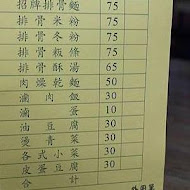 招牌排骨麵 75
排骨米粉 75
排骨冬粉 75
排骨粄條 75
排骨酥湯 65
肉燥乾麵 50
滷肉飯 30
滷蛋 10
油豆腐 30
燙青菜 30
各式小菜 30
皮蛋豆腐 30
合計